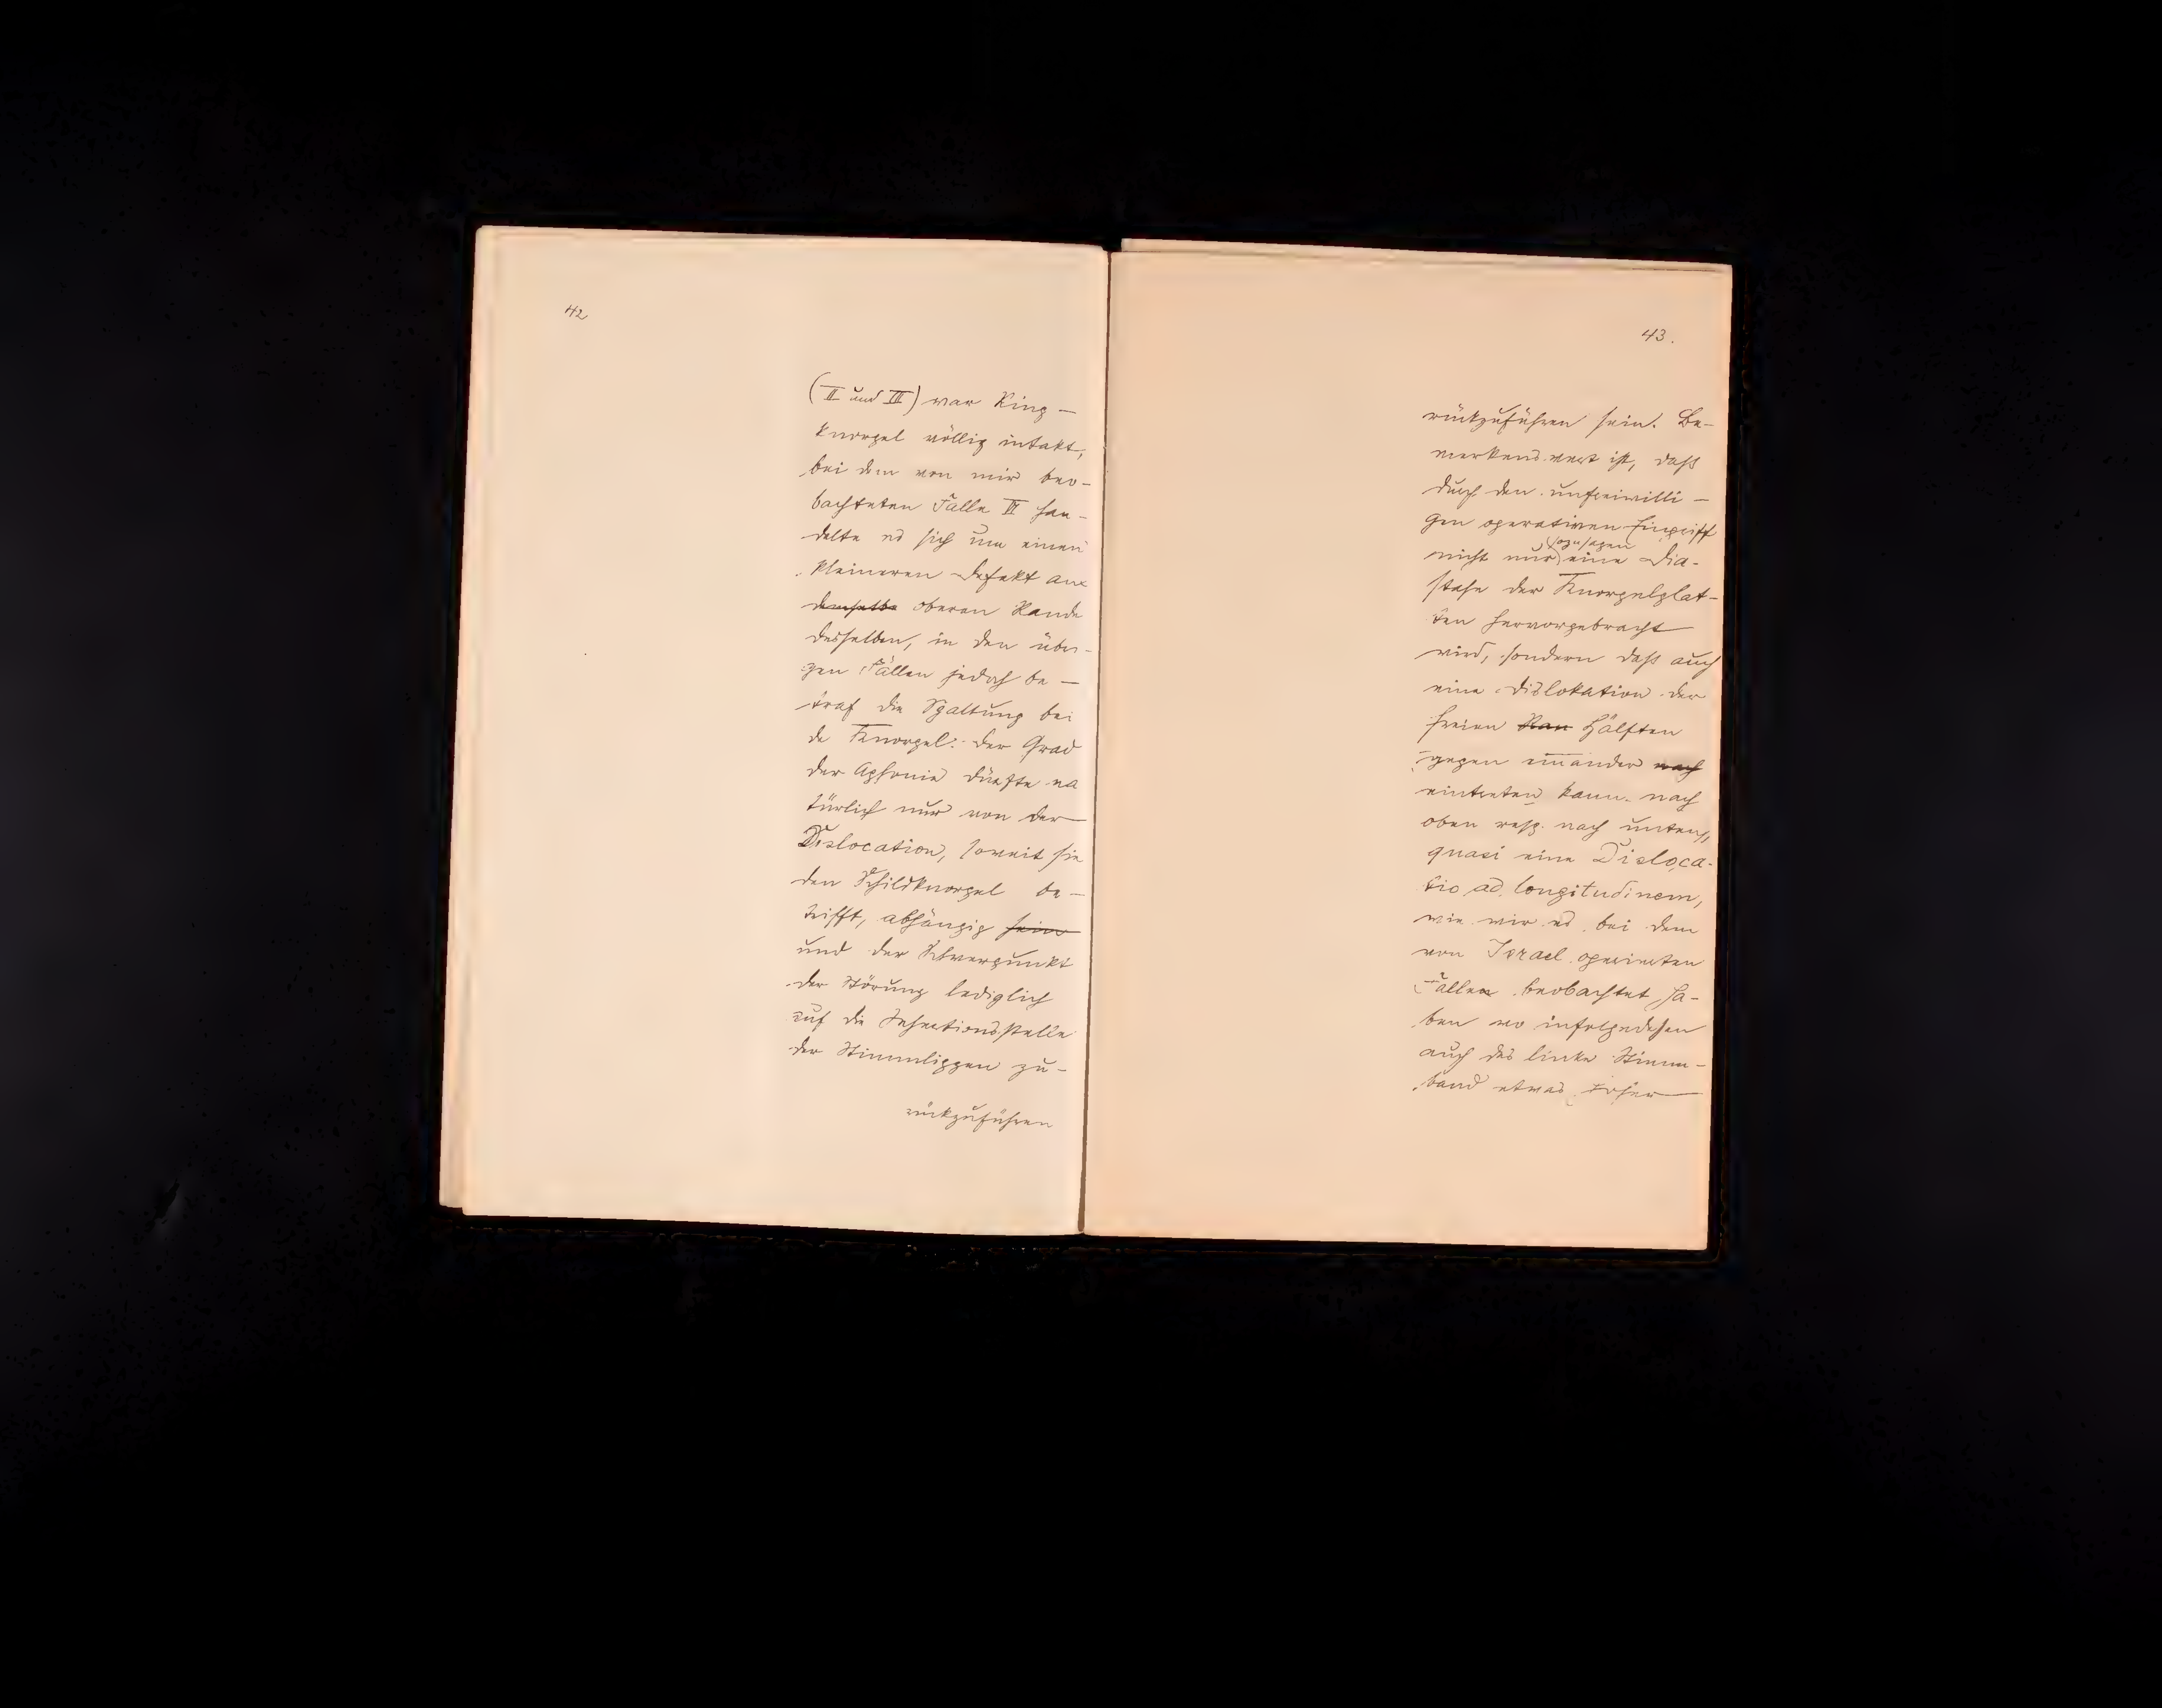 42
(II und III) war Ring-
knorpel völlig intakt,
bei dem von mir beo-
bachteten Falle II han-
delte es sich um einen
kleineren Defekt am
demselbe oberen Rande
desselben, in den übri-
gen Fällen jedoch be-
traf die Spaltung bei
de Knorpel. Der Grad
der Aphonie dürfte na
türlich nur von der
Dislocation, soweit sie
den Schildknorpel be-
trifft, abhängig sein
und der Schwerpunkt
der Störung lediglich
auf die Insertionsstelle
der Stimmlippen zu-
rückzuführen
43.
rückzuführen sein. Be-
merkenswert ist, daß
durch den unfreiwilli-
gen operativen Eingriff
sozusagen
nicht nur eine Dia-
stase der Knorpelplat-
ten hervorgebracht
wird, sondern daß auch
eine Dislokation der
freien Hälften
gegen einander nach
eintreten kann nach
oben resp. nach unten,
quasi eine Disloca-
tio ad longitudinem,
wie wir es bei dem
von Israel operirten
Fallen beobachtet ha-
ben wo infolgedessen
auch das linke Stimm-
band etwas höher